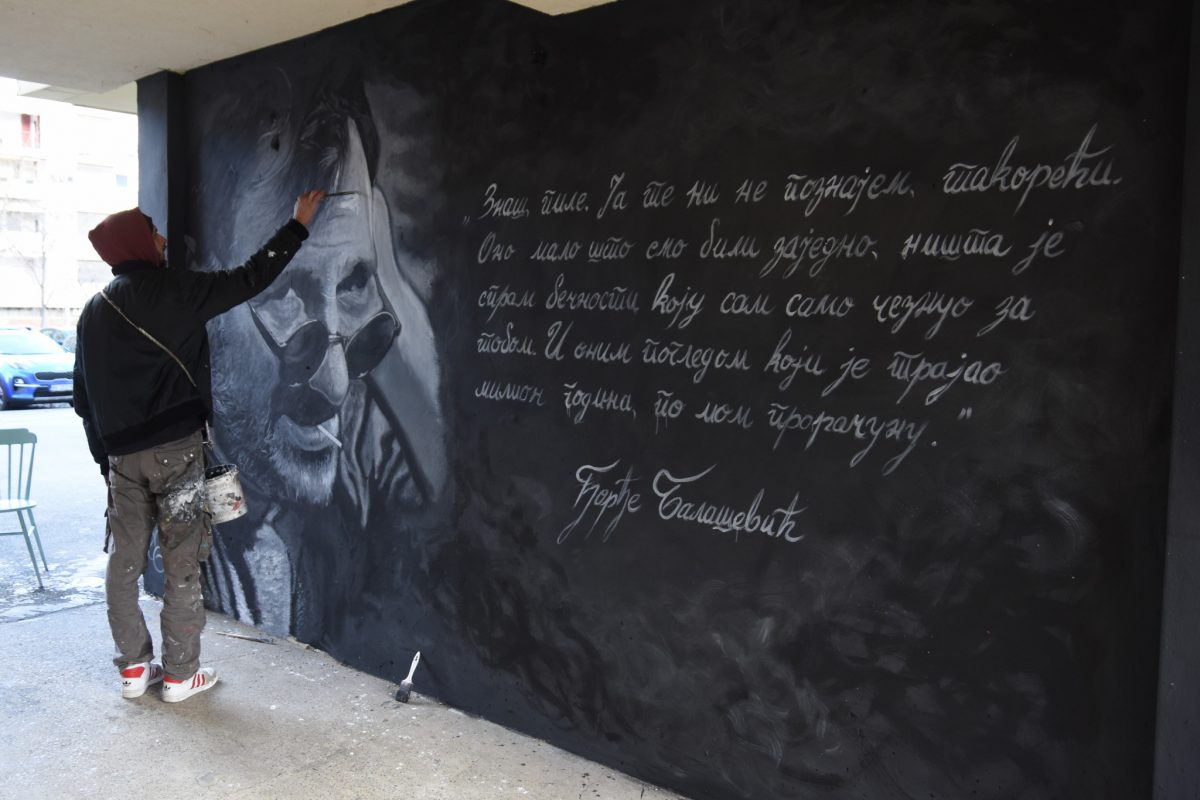 „Знаш, пиле. Ја те ни не познајем, такорећи.
Оно мало што смо били заједно, ништа је
спрам вечности коју сам само чезнуо за
тобом. И оним погледом који је трајао
милион година, по мом прорачуну."
Ђорђе Балашевић